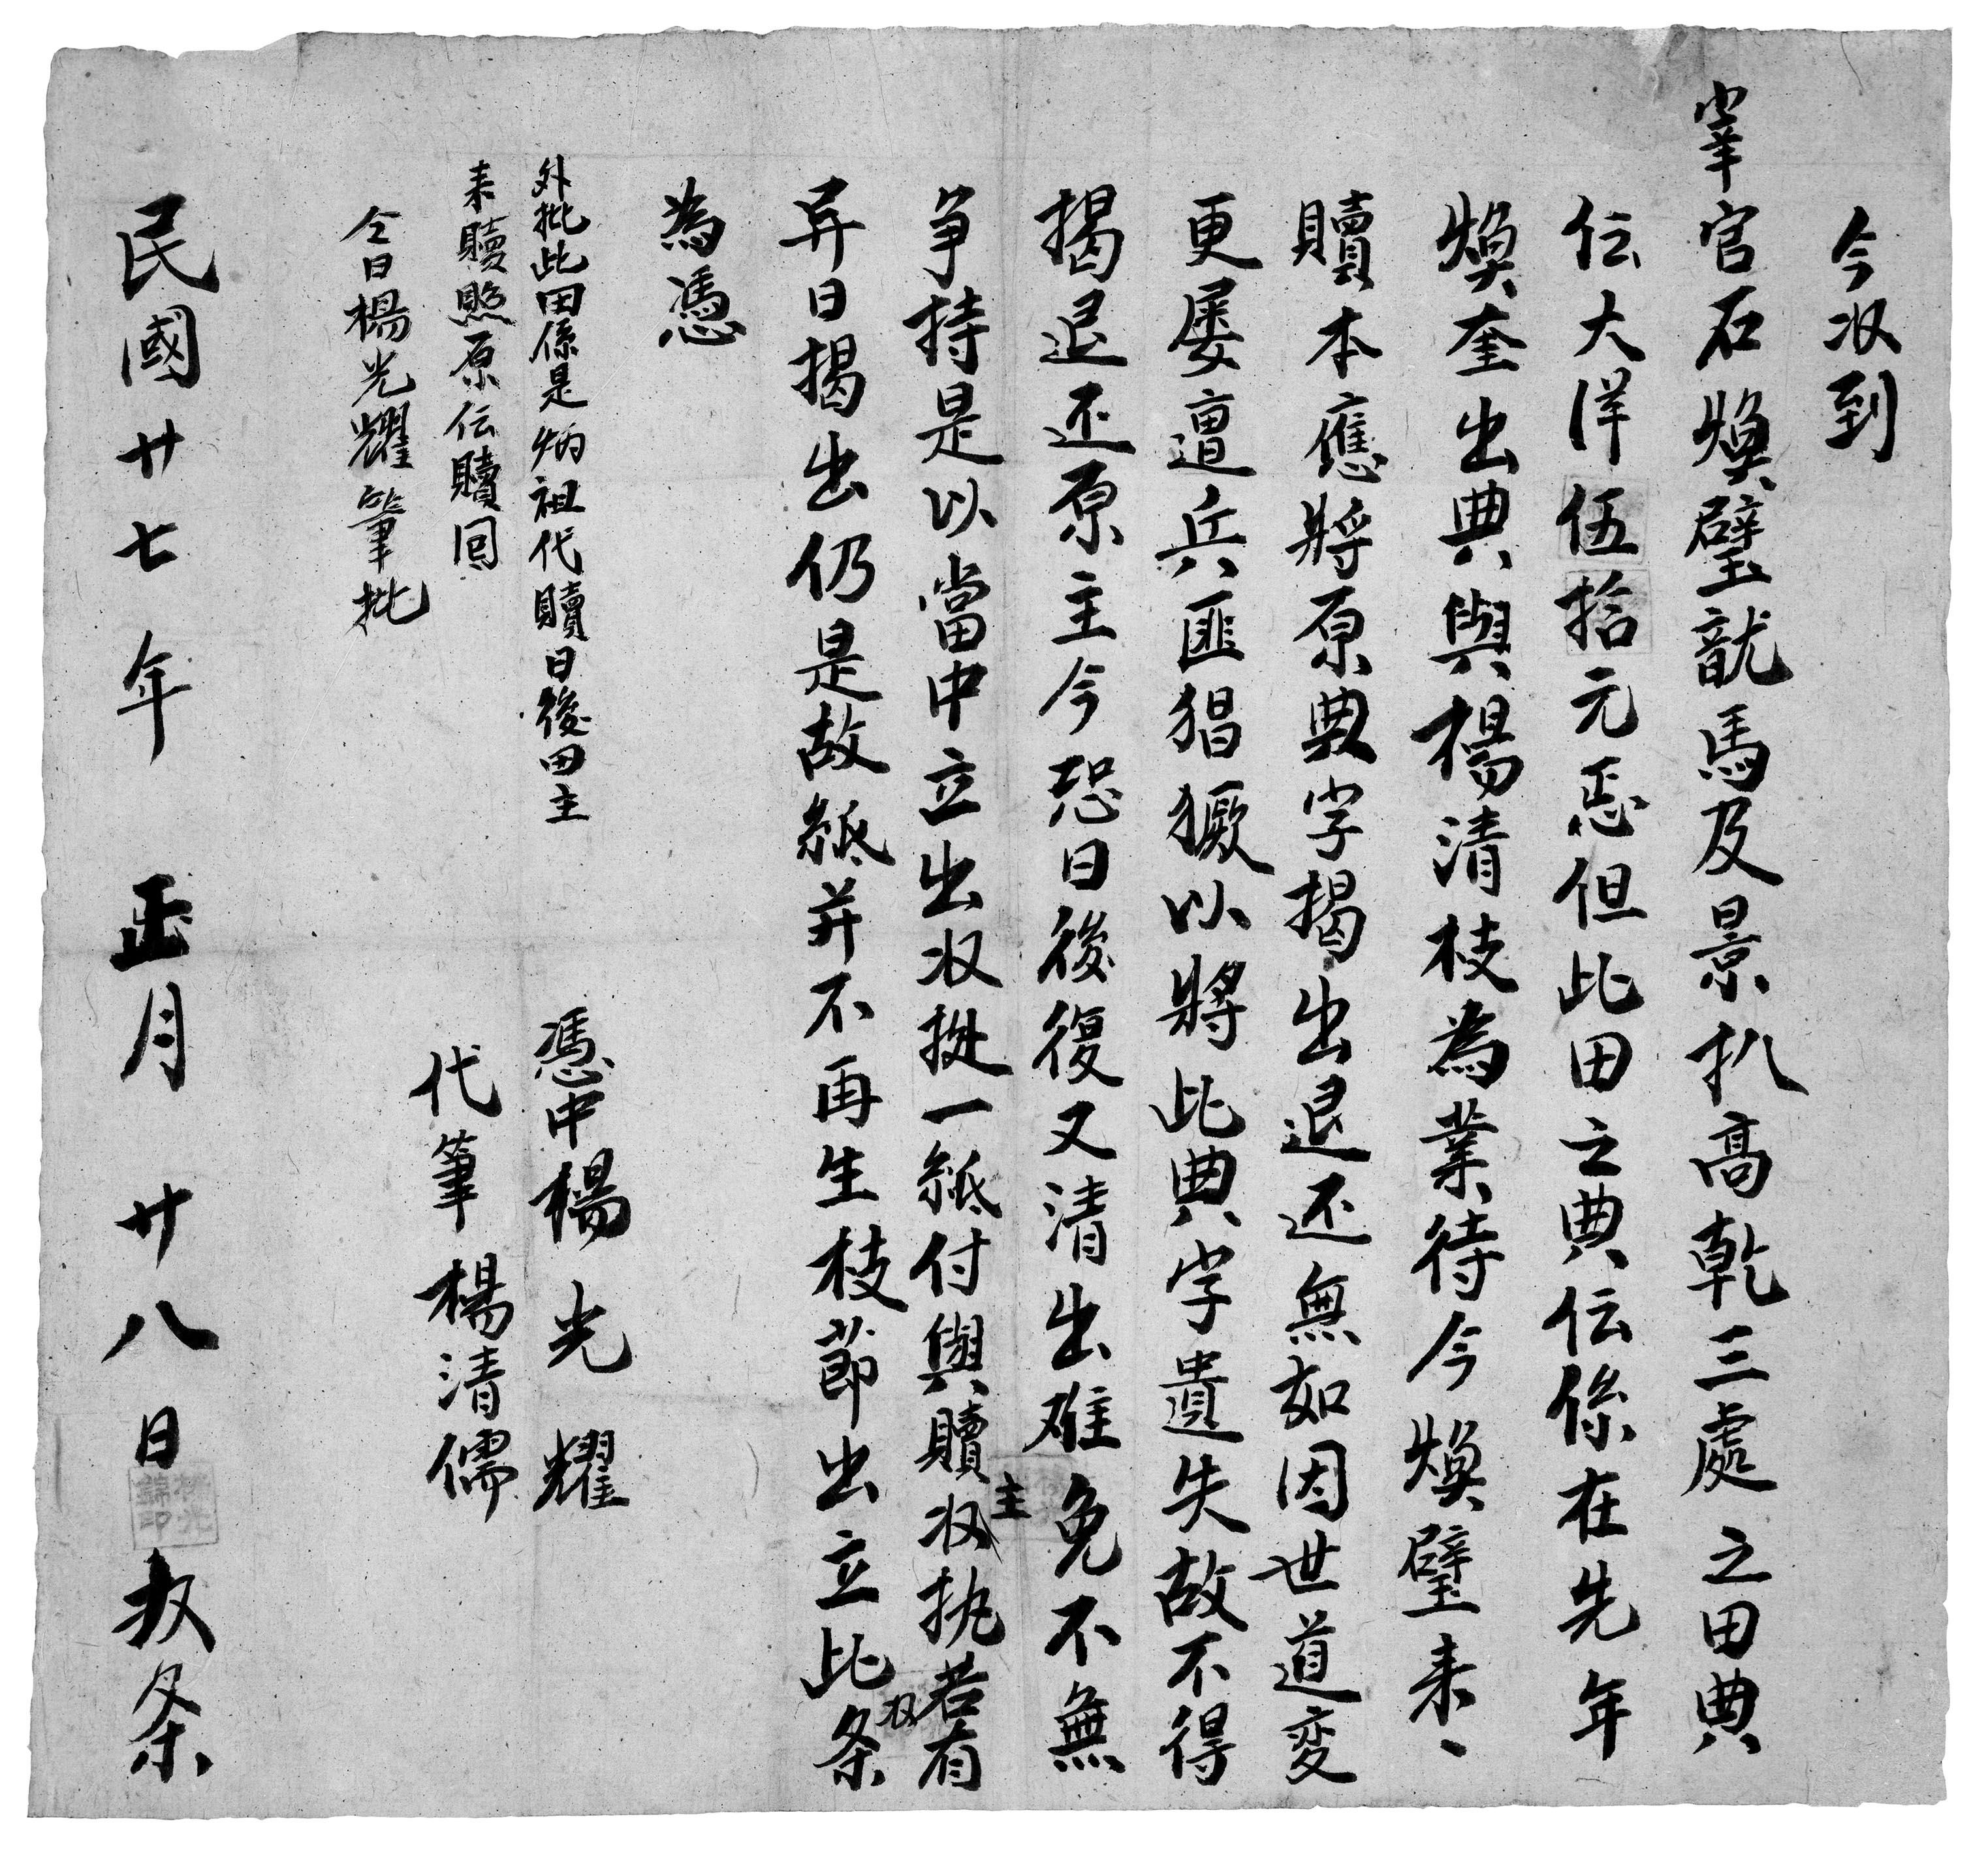 今收到
官石煥璧就馬及景扒高乾三處之田典
伝大洋伍拾元㤙但此田之典伝係在先年
煥奎出典與楊清枝為業待今煥璧来、
贖本應將原典字揭出退还無如因世道变
更屡遭兵匪猖獗以將此典字遺失故不得
揭退还原主今恐日後復又清出难免不無
争持是以當中立出收㨗一紙付與贖主收执若有
异日揭出仍是故紙并不再生枝節出立此收条
為憑
外批此田係是炳祖代贖日後田主
来贖照原伝贖囘
仝日楊光耀筆批
憑中楊光耀
代筆楊清儒
民國廿七年 正月 廿八日 收条